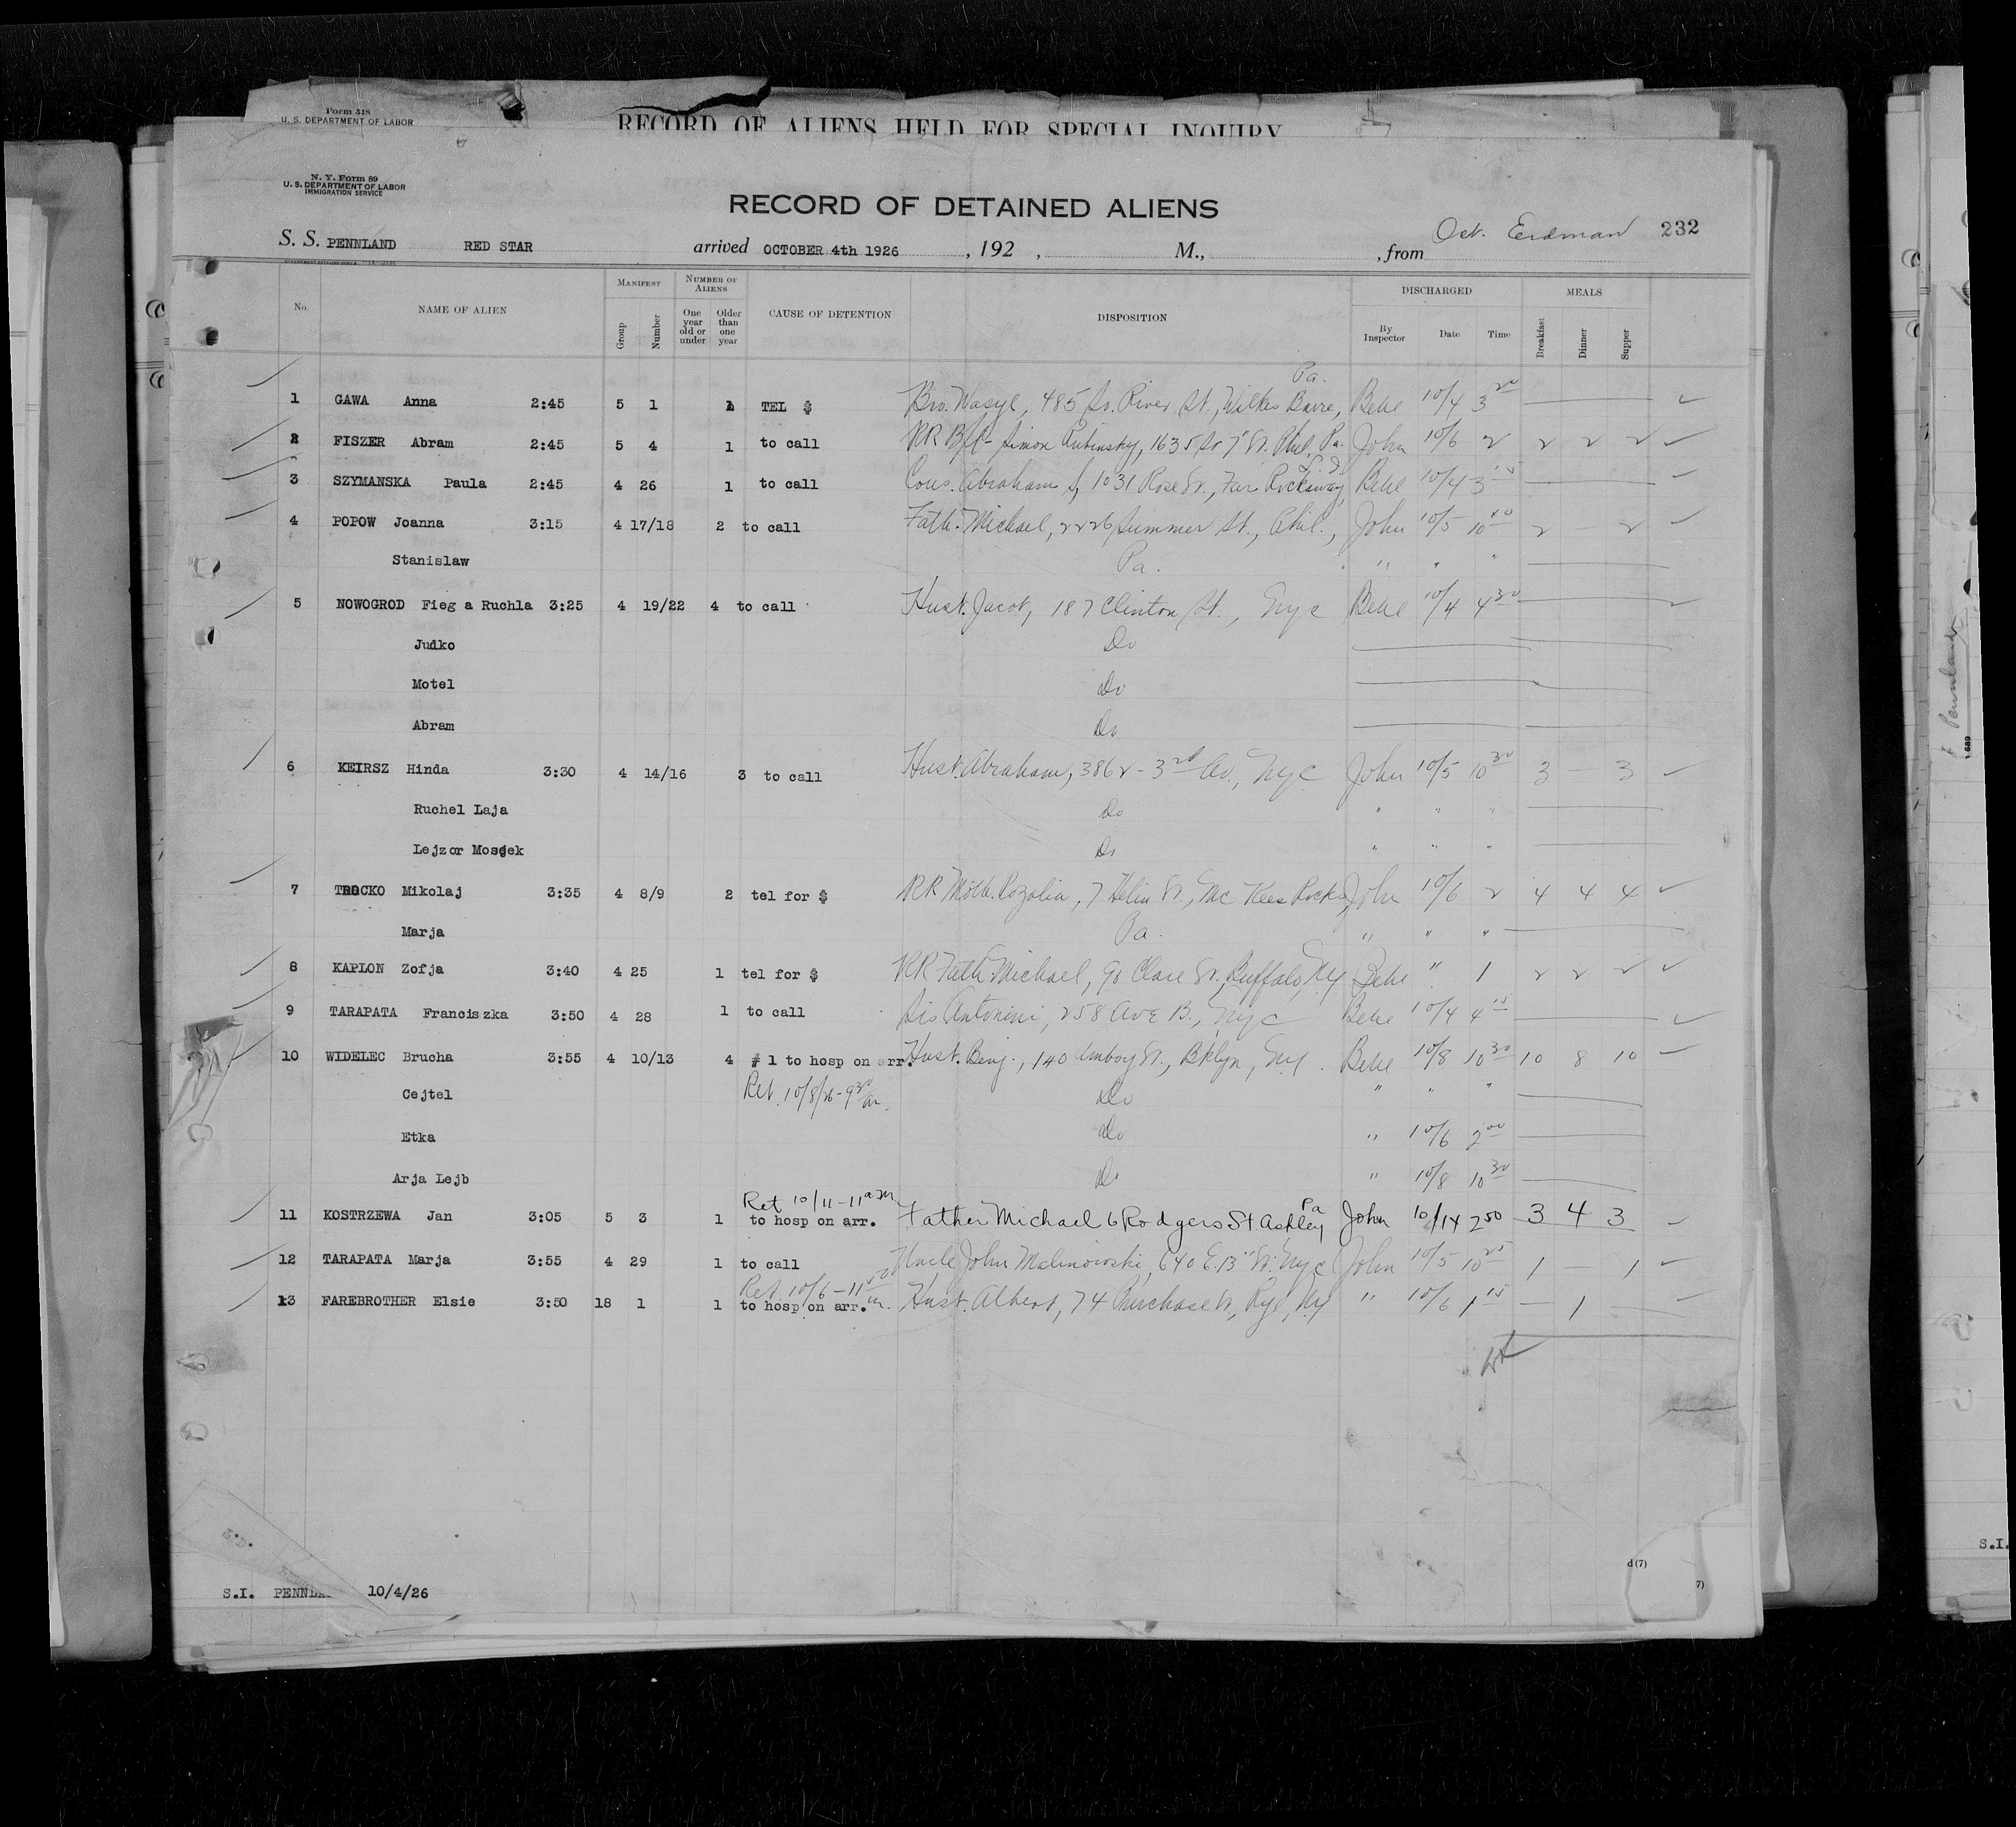 Form 548
U. S. DEPARTMENT OF LABOR
RECORD OF ALIENS HELD FOR SPECIAL INQUIRY
N. Y. Form 89
U. S. DEPARTMENT OF LABOR
IMMIGRATION SERVICE
RECORD OF DETAINED ALIENS
Oct. Erdman 232
S. S. PENNLAND RED STAR arrived OCTOBER 4th 1926 , 192 , M., , from
No. NAME OF ALIEN MANIFEST Group Number NUMBER OF ALIENS One year old or under Older than one year CAUSE OF DETENTION DISPOSITION DISCHARGED By Inspector Date Time MEALS Breakfast Dinner Supper
Pa.
1 GAWA Anna 2:45 5 1 1 TEL $ Bro. Wasyl, 485 So. River St., Wilkes Barre, Bebe 10/4 3 20
2 FISZER Abram 2:45 5 4 1 to call RR Simon Rubinsky, 1635 So 7" St. Phil, Pa. John 10/6 2 2 2 2
3 SZYMANSKA Paula 2:45 4 26 1 to call Cous. Abraham S, 1031 Rose St., Far Rockaway, Bebe 10/4 3 15
4 POPOW Joanna 3:15 4 17/18 2 to call Fath. Michael, 2226 Summer St., Phil., John 10/5 10 40 2 2
Stanislaw Pa. " " "
5 NOWOGROD Fieg a Ruchla 3:25 4 19/22 4 to call Husb. Jacob, 187 Clinton St., Nyc Bebe 10/4 4 30
Judko Do
Motel Do
Abram Do
6 KEIRSZ Hinda 3:30 4 14/16 3 to call Husb. Abraham, 3862 - 3rd Av., Nyc John 10/5 10 30 3 — 3
Ruchel Laja Do " " "
Lejzor Mosjek Do " " "
7 TROCKO Mikolaj 3:35 4 8/9 2 tel for $ RR Moth. Rozalia, 7 Helen St., Mc Kees Rocks, John 10/6 2 4 4 4
Marja Pa. " " "
8 KAPLON Zofja 3:40 4 25 1 tel for $ RR Fath. Michael, 90 Clare St., Buffalo, NY Bebe " 1 2 2 2
9 TARAPATA Franciszka 3:50 4 28 1 to call Sis. Antonini, 258 Ave B., Nyc Bebe 10/4 4 15
10 WIDELEC Brucha 3:55 4 10/13 4 # 1 to hosp on arr. Husb. Benj., 140 Amboy St., Bklyn, NY. Bebe 10/8 10 30 10 8 10
Cejtel Ret. 10/8/26 - 9 30 am. Do " " "
Etka Do " 10/6 2 00
Arja Lejb Do " 10/8 10 30
Ret 10/11 - 11 am Pa
11 KOSTRZEWA Jan 3:05 5 3 1 to hosp on arr. Father Michael 6 Rodgers St Ashley John 10/14 2 50 3 4 3
12 TARAPATA Marja 3:55 4 29 1 to call Uncle John Malinowski, 640 E. 13" St. Nyc John 10/5 10 25 1 — 1
Ret 10/6 - 11
13 FAREBROTHER Elsie 3:50 18 1 1 to hosp on arr. Husb. Albert, 74 Purchase St., Rye, NY " 10/6 1 15 — 1 —
d (7)
7)
S.I. PENNLA 10/4/26
Pennland
689
S.I.